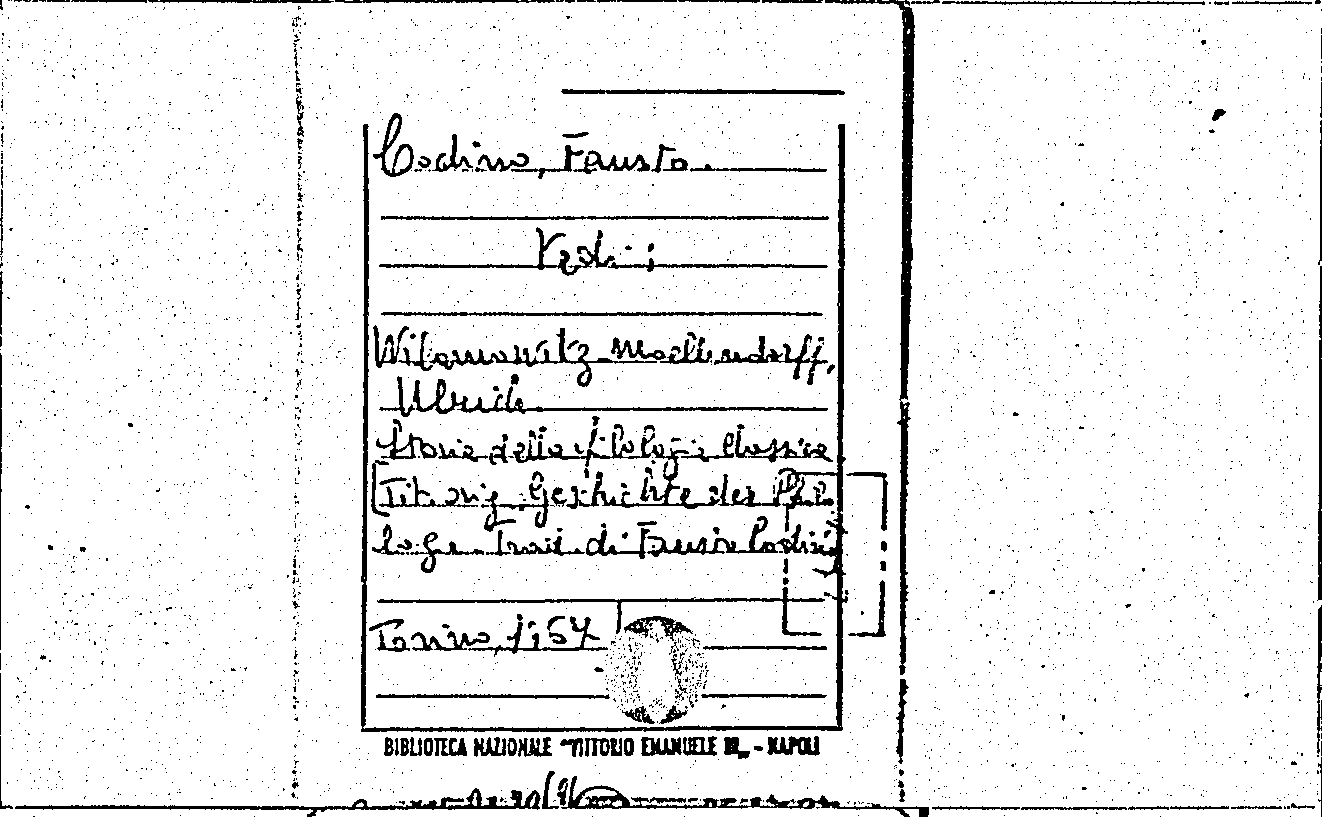 Codino, Fausto.
Vedi:
Wilamowitz-Moellendorff,
Ulrich.
Storia della filologia classica.
[Tit. orig. Geschichte der Philo
logie. Trad. di Fausto Codino]
Torino, 1967
BIBLIOTECA NAZIONALE "VITTORIO EMANUELE III" - NAPOLI